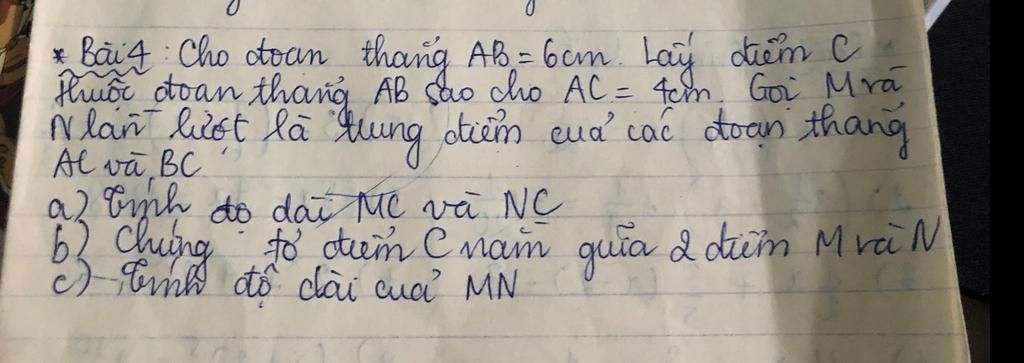 * Bài 4 : Cho đoan thẳng AB = 6cm. Lấy điểm C
thuộc đoan thẳng AB sao cho AC = 4cm. Gọi M và
N lần lượt là trung điểm của các đoạn thẳng
AC và BC
a) Tính độ dài MC và NC
b) Chứng tỏ điểm C nằm giữa 2 điểm M và N
c) Tính độ dài của MN